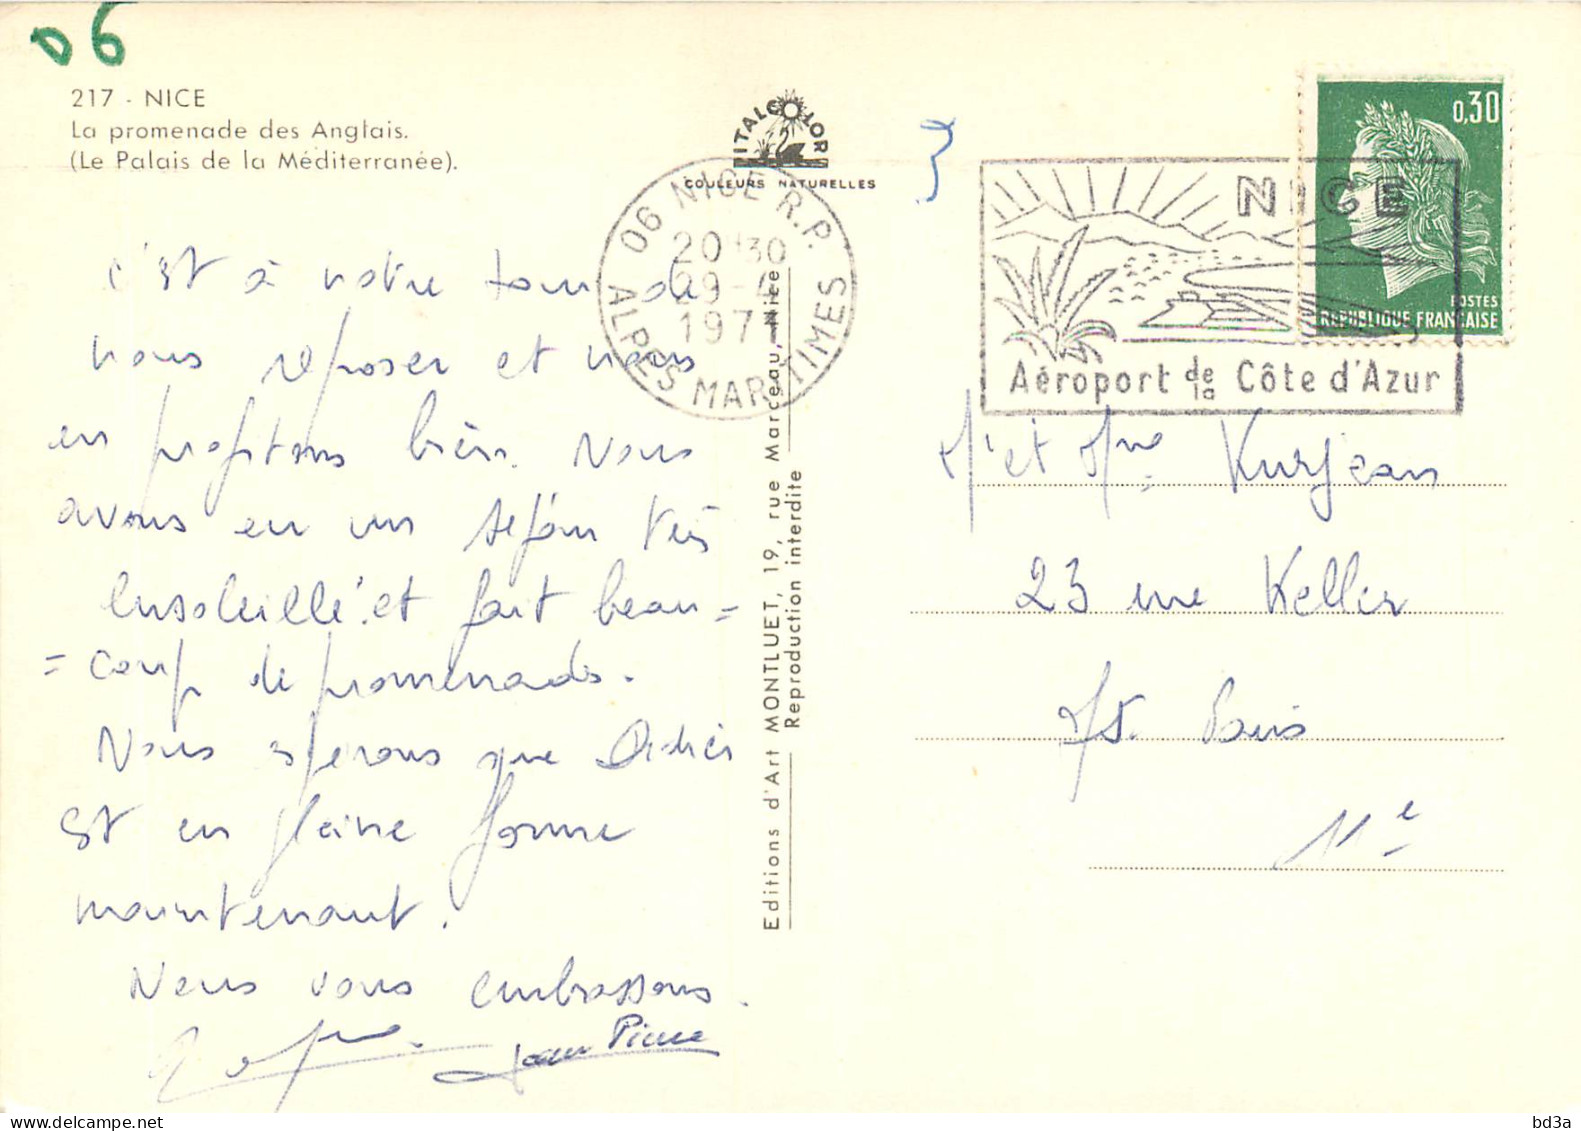 06
217 - NICE
La promenade des Anglais.
(Le Palais de la Méditerranée).
ITALCOLOR
COULEURS NATURELLES
06 NICE R.P.
20 H 30
29-4
1971
ALPES MARITIMES
NICE
Aéroport de la Côte d'Azur
0,30
POSTES
REPUBLIQUE FRANÇAISE
c'est à notre tour de
nous reposer et nous
en profitons bien. Nous
avons eu un séjour très
ensoleillé et fait beau=
=coup de promenades.
Nous espérons que Didier
est en pleine forme
maintenant.
Nous vous embrassons.
Jean Pierre
Editions d'Art MONTLUET, 19, rue Marceau, Nice
Reproduction interdite
Mr et Mme Kurjean
23 rue Keller
75. Paris
11e
bd3a